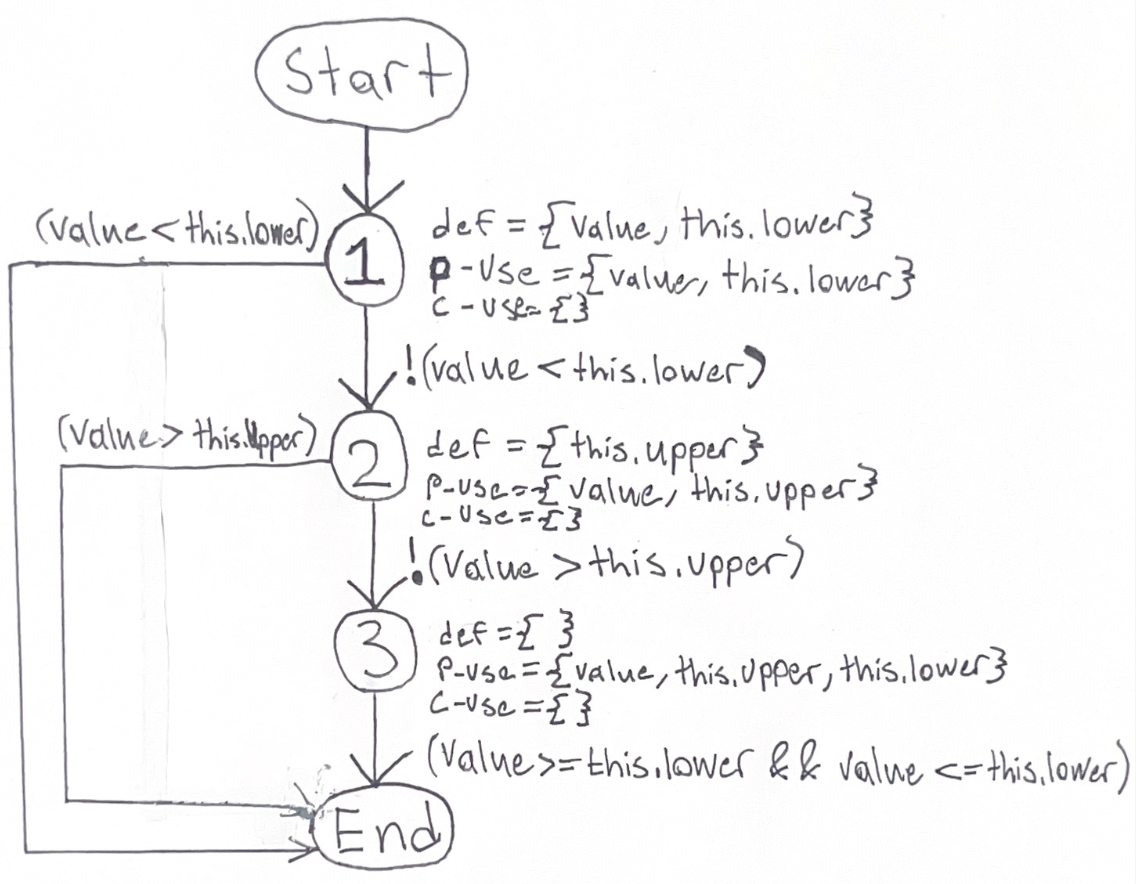 Start
(value < this.lower)
1
def = {value, this.lower}
p-use = {value, this.lower}
c-use = {}
!(value < this.lower)
(value > this.Upper)
2
def = {this.upper}
p-use = {value, this.upper}
c-use = {}
!(value > this.upper)
3
def = { }
p-use = {value, this.upper, this.lower}
c-use = { }
(value >= this.lower && value <= this.lower)
End